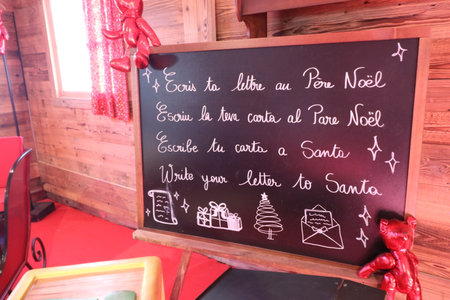 Ecris ta lettre au Père Noël
Escriu la teva carta al Pare Noël
Escribe tu carta a Santa
Write your letter to Santa